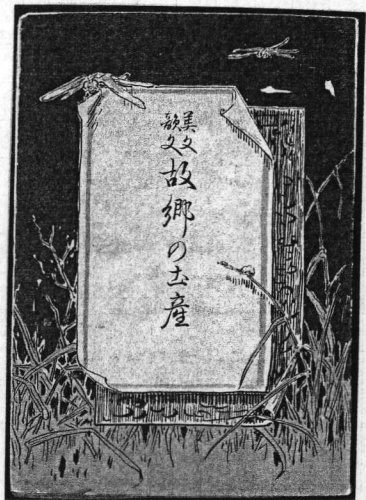 美文
韻文
故郷の土産